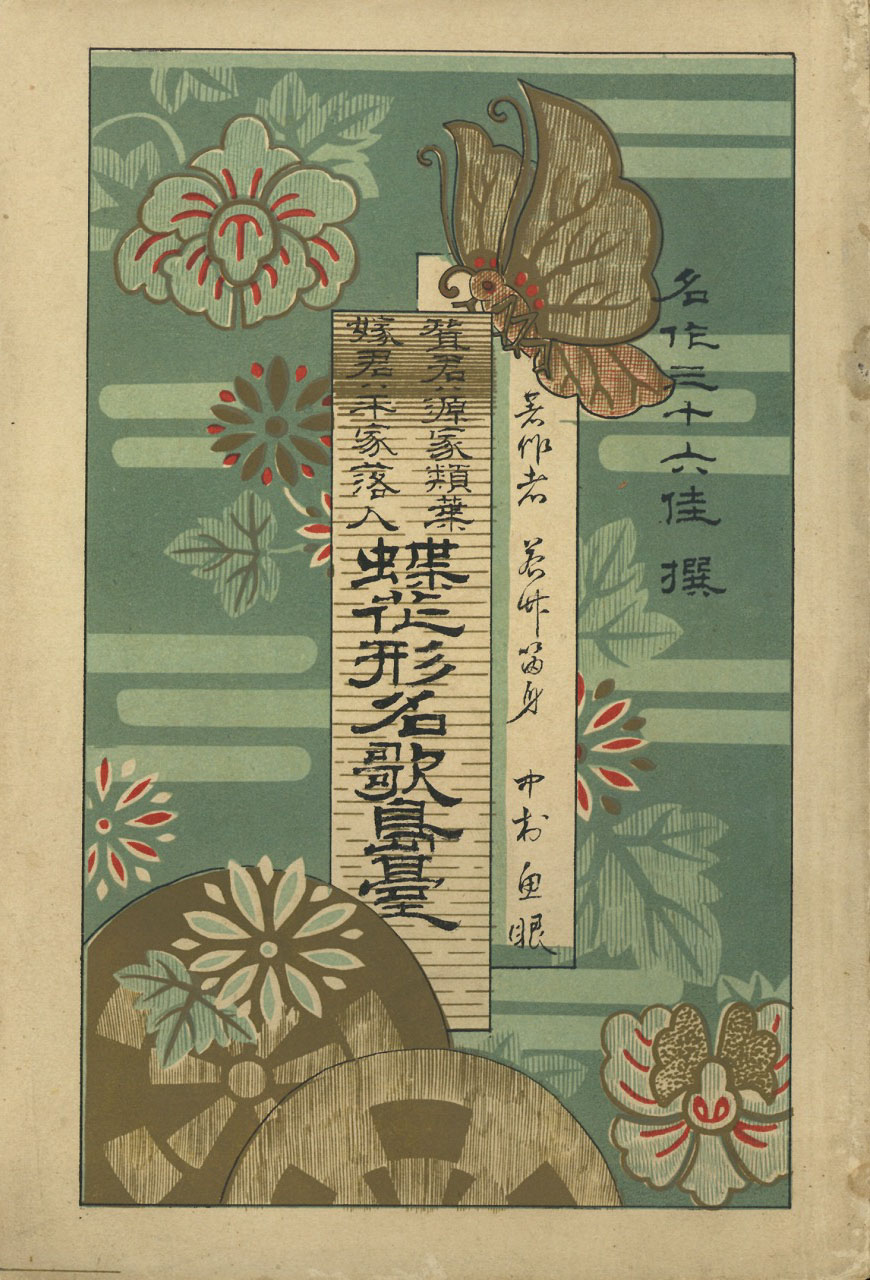 名作三十六佳撰
著作者 若竹笛身 中村魚眼
聟君ハ源家類葉
嫁君ハ平家落人
蝶花形名歌島臺